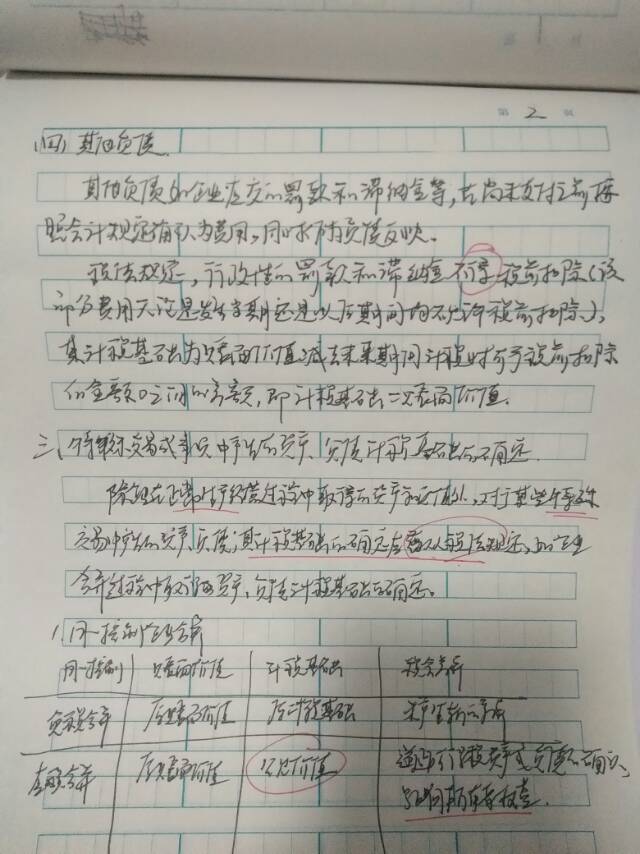 第 2 页
(四) 其他负债
其他负债如企业应交的罚款和滞纳金等,在尚未支付之前按
照会计规定确认为费用,同时作为负债反映。
税法规定,行政性的罚款和滞纳金不得税前扣除(该
部分费用无论是发生当期还是以后期间均不允许税前扣除),
其计税基础为账面价值减去未来期间计税时可予税前扣除
的金额0之间的差额,即计税基础=账面价值。
三、特殊交易或事项中产生的资产、负债计税基础的确定
除企业在正常生产经营过程中取得的资产和负债外,对于某些特殊
交易中产生的资产、负债,其计税基础的确定应遵从税法规定,如企业
合并过程中取得资产、负债计税基础的确定。
1.同一控制企业合并
同一控制 账面价值 计税基础
免税合并 原账面价值 原计税基础 未产生暂时性差异
应税合并 原账面价值 公允价值